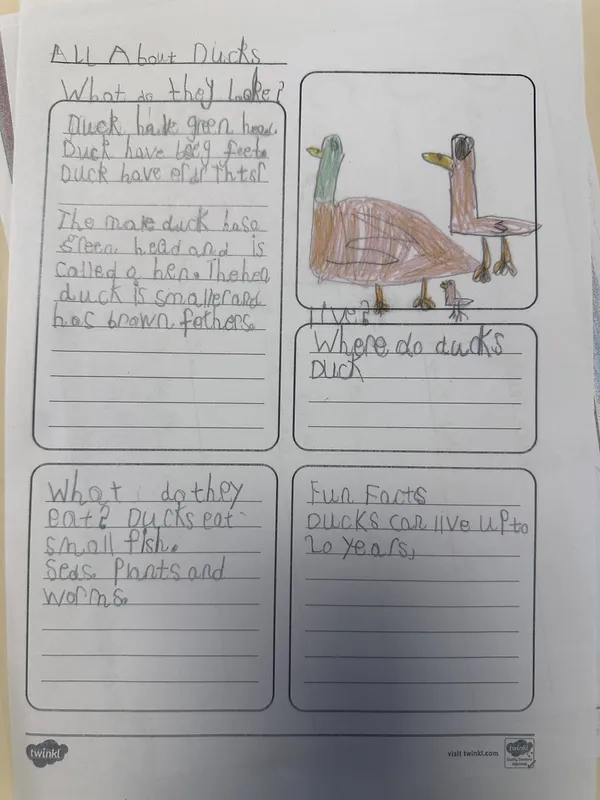 All About Ducks
What do they looke?
Duck have green head.
Duck have beeg feet.
Duck have
The male duck hase
green head and is
called a hen. The hen
duck is smaller and
has brown fothers.
live?
Where do ducks
Duck
What do they
eat? Ducks eat
small fish.
Seds. Plants and
worms.
Fun Facts
Ducks can live up to
20 years,
twinkl
visit twinkl.com
twinkl